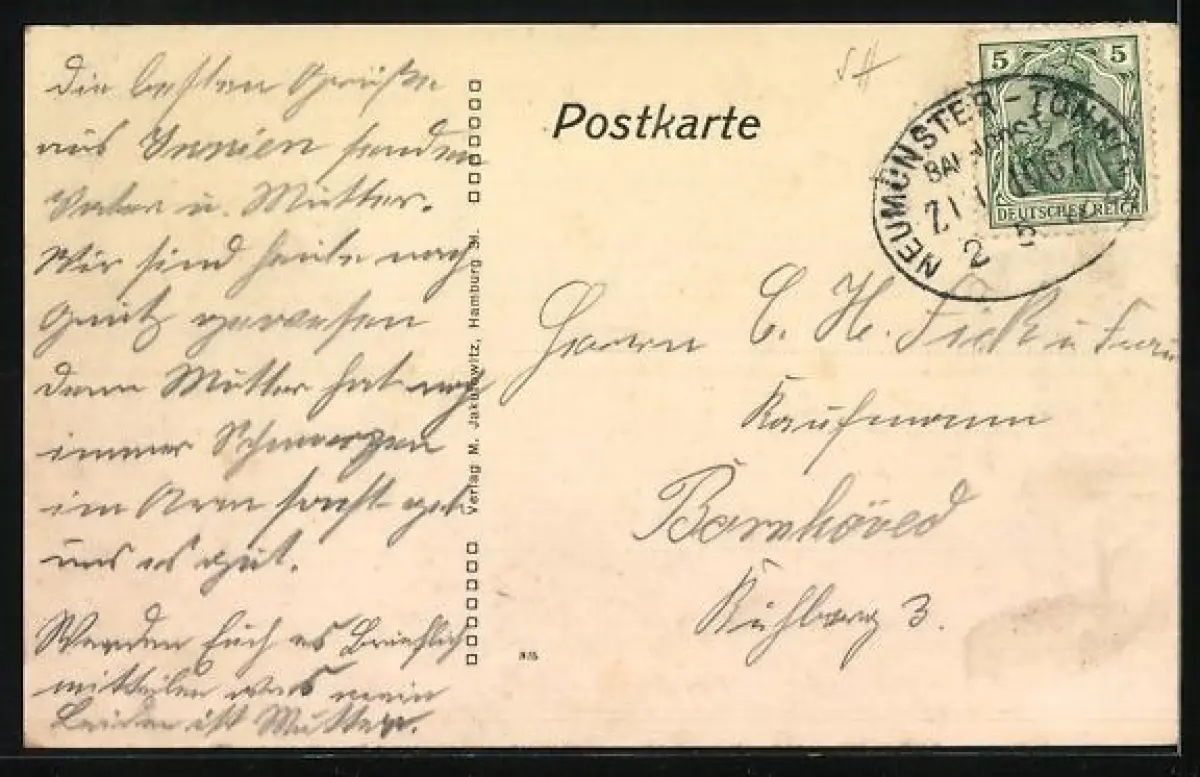 die besten Grüße
aus Innien senden
Vater u. Mutter.
Wir sind heute nach
gewesen
denn Mutter hat noch
immer Schmerzen
im Arm sonst geht
uns es gut.
Werden Euch es Brieflich
mitteilen was mein
Leiden ist Mutter.
Verlag M. Jakubowitz, Hamburg 31.
Postkarte
5 5
DEUTSCHES REICH
NEUMÜNSTER - TÖNNING
BAHNPOST
Herrn C. H. Fick u Frau
Kaufmann
Bornhöved
Kuhberg 3.